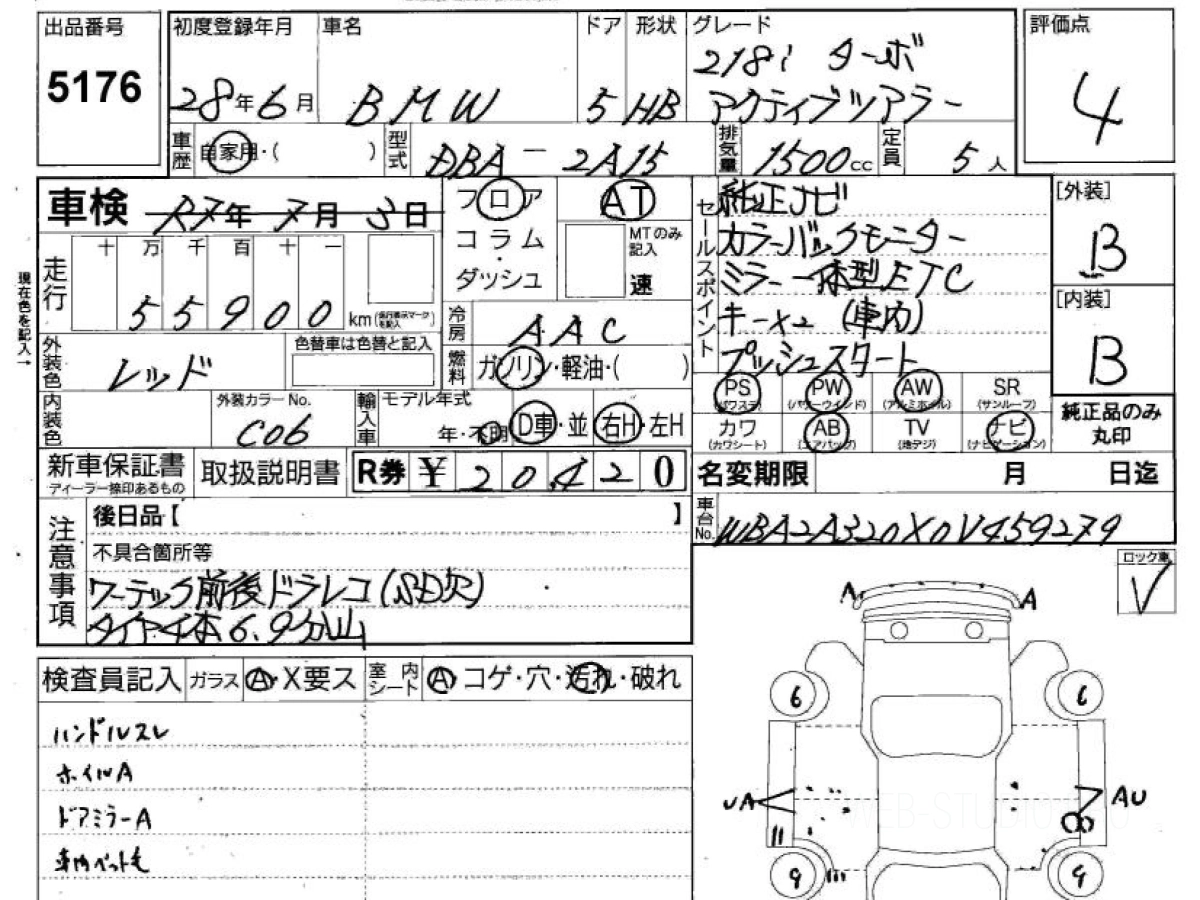 出品番号
5176
初度登録年月
28年6月
車名
BMW
ドア
5
形状
HB
グレード
218i ターボ
アクティブツアラー
評価点
4
車歴
自家用・( )
型式
DBA-2A15
排気量
1500cc
定員
5人
車検 R7年7月3日
フロア
コラム
・
ダッシュ
AT
MTのみ
記入
速
セールスポイント
純正ナビ
カラーバックモニター
ミラー一体型ETC
キー×2 (車内)
プッシュスタート
[外装]
B
[内装]
B
現在色を記入→
走行
十 万 千 百 十 一
55900
km
冷房
AAC
外装色
レッド
色替車は色替と記入
燃料
ガソリン・軽油・( )
内装色
外装カラーNo.
C06
輸入車
モデル年式
年・不明
D車・並
右H・左H
PS
(パワステ)
PW
(パワーウインド)
AW
(アルミホイル)
SR
(サンルーフ)
カワ
(カワシート)
AB
(エアバッグ)
TV
(地デジ)
ナビ
(ナビゲーション)
純正品のみ
丸印
新車保証書
ディーラー捺印あるもの
取扱説明書
R券 ¥ 20420
名変期限 月 日迄
車台No.
WBA2A320X0V459279
注意事項
後日品【 】
不具合箇所等
ワーテック前後ドラレコ(SD欠)
タイヤ4本6.9分山
ロック車
V
検査員記入
ガラス
A・X要ス
室内シート
A・コゲ・穴・汚れ・破れ
ハンドルスレ
ホイルA
ドアミラーA
車内ペット毛
A
A
6
6
UA
AU
9
9
WEB-STUDIO